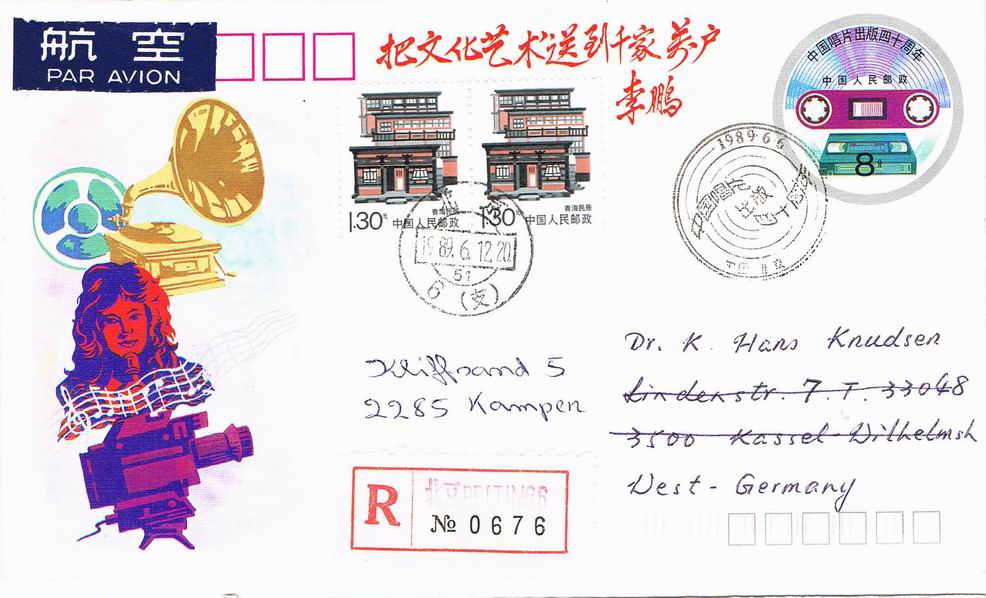 航空
PAR AVION
把文化艺术送到千家万户
李鹏
中国唱片出版四十周年
中国人民邮政
8分
青海民居
1.30元 中国人民邮政
青海民居
1.30元 中国人民邮政
1989.6.12.20
51
6(支)
1989·6·6
中国唱片
出版
四十周年
中国 北京
Dr. K. Hans Knudsen
Lindenstr 7. T. 33048
3500 Kassel-Wilhelmsh
West-Germany
Kliffsand 5
2285 Kampen
R 北京BEIJING6
№ 0676